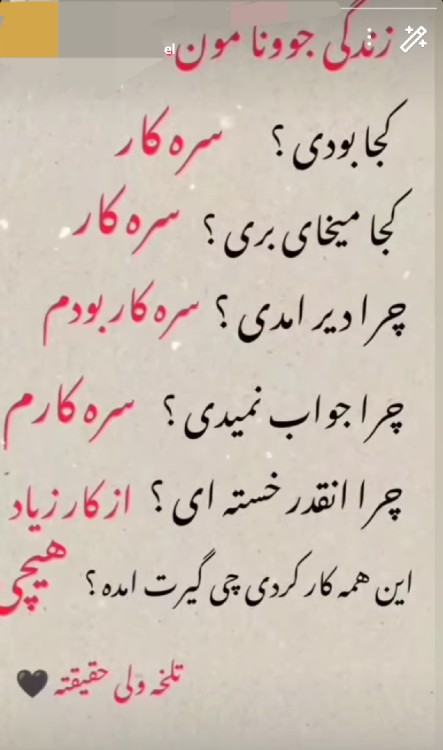 زندگی جوونا مون
el
کجا بودی ؟ سره کار
کجا میخای بری ؟ سره کار
چرا دیر امدی ؟ سره کار بودم
چرا جواب نمیدی ؟ سره کارم
چرا انقدر خسته ای ؟ از کار زیاد
این همه کار کردی چی گیرت امده ؟ هیچی
تلخه ولی حقیقته 🖤